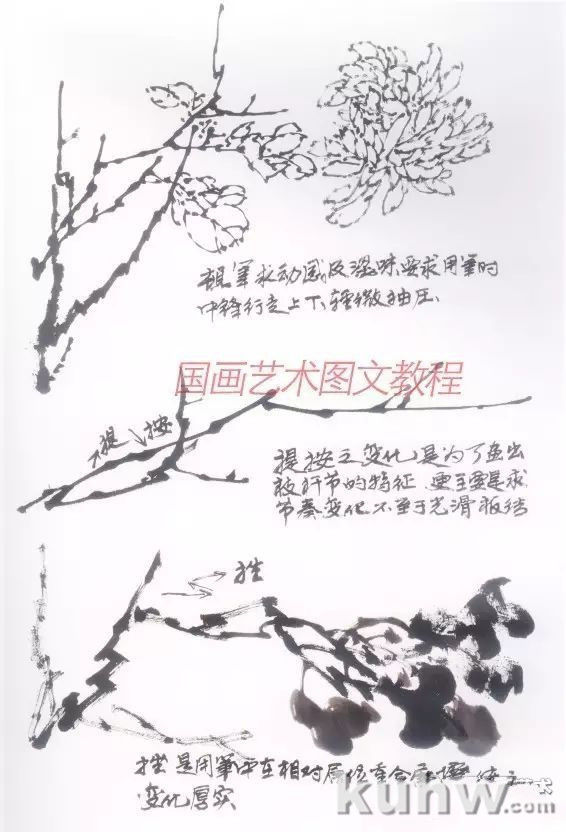 笔求动感及涩味要求用笔时
中锋行走上下轻微抽压
国画艺术图文教程
提 按
提按之变化是为了画出
枝干节的特征更主要是求
节奏变化不至于光滑板结
挫
挫是用笔中在相对局位重合
变化厚实
kuhw.com